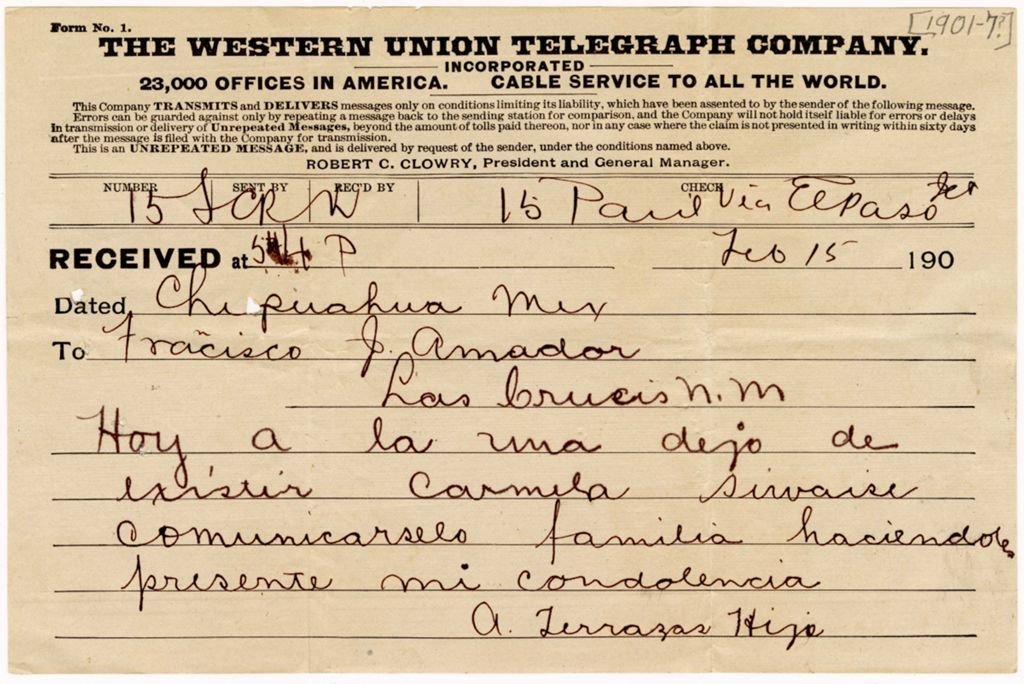 Form No. 1.
[1901-7?]
THE WESTERN UNION TELEGRAPH COMPANY.
INCORPORATED
23,000 OFFICES IN AMERICA. CABLE SERVICE TO ALL THE WORLD.
This Company TRANSMITS and DELIVERS messages only on conditions limiting its liability, which have been assented to by the sender of the following message.
Errors can be guarded against only by repeating a message back to the sending station for comparison, and the Company will not hold itself liable for errors or delays
in transmission or delivery of Unrepeated Messages, beyond the amount of tolls paid thereon, nor in any case where the claim is not presented in writing within sixty days
after the message is filed with the Company for transmission.
This is an UNREPEATED MESSAGE, and is delivered by request of the sender, under the conditions named above.
ROBERT C. CLOWRY, President and General Manager.
NUMBER SENT BY REC'D BY CHECK
15 15 Paid Via El Paso
RECEIVED at P Feb 15 190
Dated Chihuahua Mex
To Francisco J. Amador
Las Crucis N.M
Hoy a la una dejo de
existir Carmela sirvaise
comunicarselo familia haciendoles
presente mi condolencia
A. Terrazas Hijo